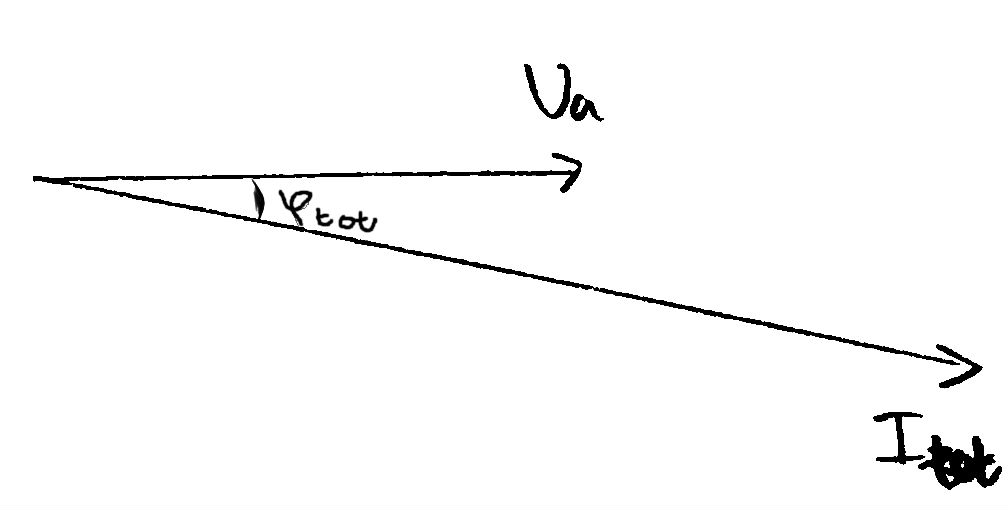 Ua
φtot
Itot